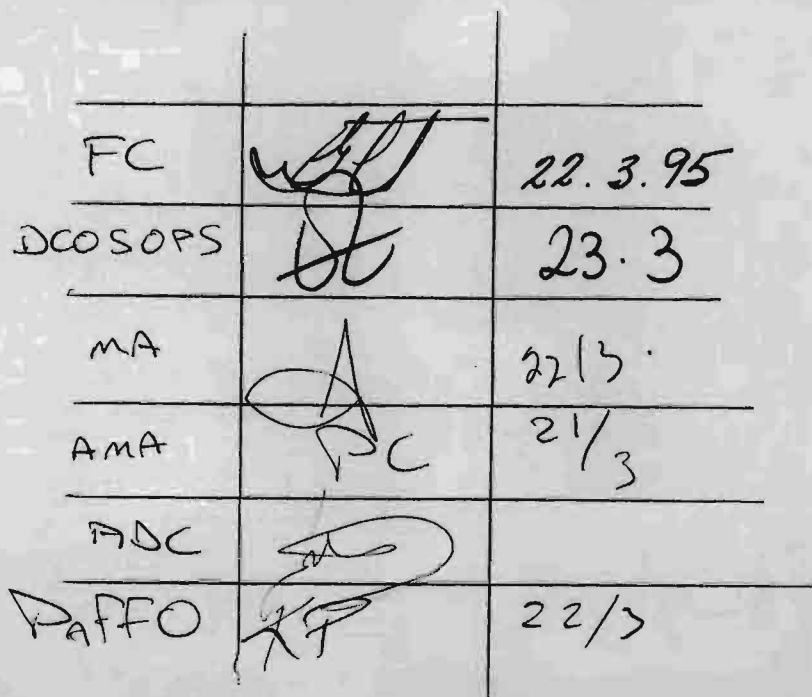 FC 22.3.95
DCOSOPS 23.3
MA 22/3
AMA PC 21/3
ADC
PAFFO KP 22/3